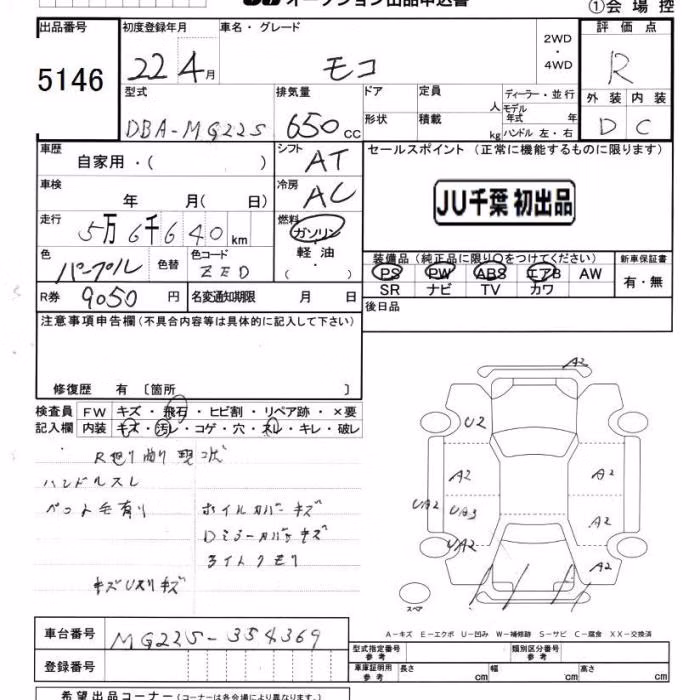 オークション出品申込書
①会場控
出品番号 5146
初度登録年月 22 4月
車名・グレード モコ
2WD・4WD
評価点 R
外装 D
内装 C
型式 DBA-MG22S
排気量 650cc
ドア
定員 人
ディーラー・並行
モデル年式 年
形状
積載 kg
ハンドル 左・右
車歴 自家用・( )
シフト AT
セールスポイント (正常に機能するものに限ります)
JU千葉 初出品
車検 年 月( 日)
冷房 AC
走行 5万6千640km
燃料 ガソリン・軽油・( )
色 パープル
色替
色コード ZED
装備品(純正品に限り○をつけてください)
PS PW ABS エアB AW
SR ナビ TV カワ
新車保証書 有・無
R券 9050円
名変通知期限 月 日
後日品
注意事項申告欄(不具合内容等は具体的に記入して下さい)
修復歴 有 〔箇所 〕
検査員記入欄
FW キズ・飛石・ヒビ割・リペア跡・×要
内装 キズ・汚レ・コゲ・穴・スレ・キレ・破レ
ハンドルスレ
ペット毛有り
ホイルカバーキズ
Dミラーカバーキズ
ライトクモリ
A2
U2
A2
A2
UA2
UA3
A2
UA2
A2
スペア
A-キズ E-エクボ U-凹み W-補修跡 S-サビ C-腐食 XX-交換済
車台番号 MG22S-354369
登録番号
型式指定番号 参考
類別区分番号 参考
車庫証明用 参考
長さ cm
幅 cm
高さ cm
希望出品コーナー(コーナーは各会場により異なります)